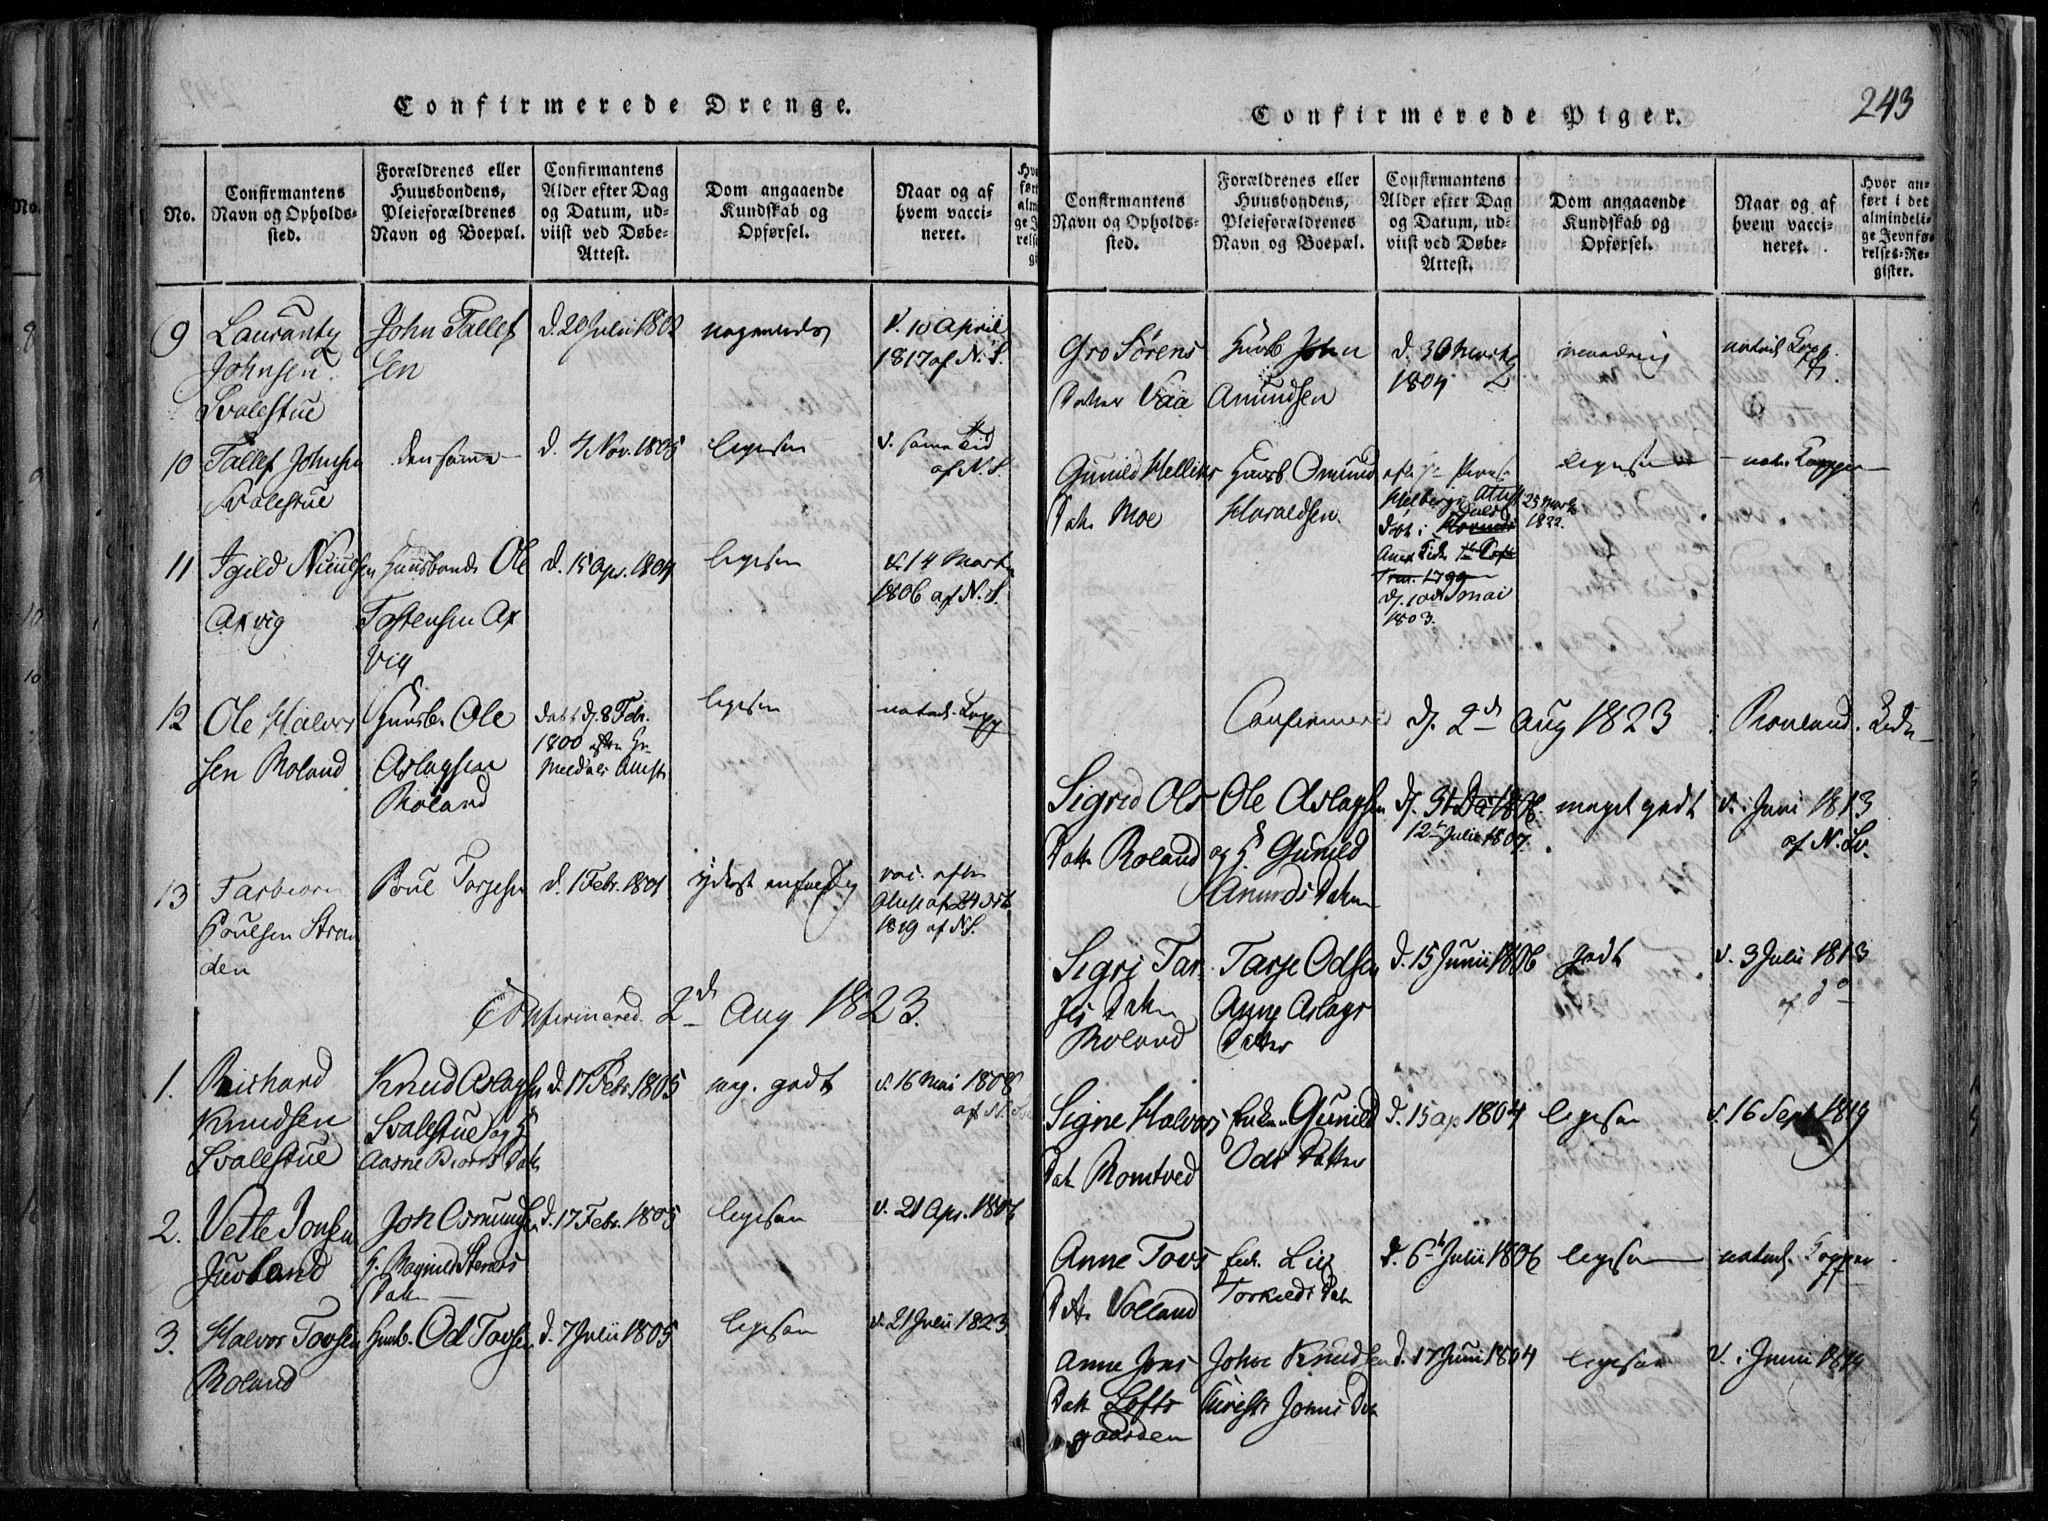 Confirmerede Drenge.
No.
Confirmantens
Navn og Opholds-
sted.
Forældrenes eller
Huusbondens,
Pleieforældrenes
Navn og Boepæl.
Confirmantens
Alder efter Dag
og Datum, ud-
viist ved Døbe-
Attest.
Dom angaaende
Kundskab og
Opførsel.
Naar og af
hvem vacci-
neret.
9
Laurantz
Johnsen
Svalestue
John Tallef
sen
d. 20 Julii 1802
v. 10 April
1817 af N. S.
10
Tallef Johnsen
Svalestue
den samme
d. 4 Nov. 1805
ligesaa
v. samme Tid
af N. S.
11
Arvig
Huusbonde Ole
Tostensen Ar
vig
d. 15 Apr. 1804
ligesaa
d. 14 Martz
1806 af N. S.
12
Ole Halvor
sen Roland
Huusb. Ole
Aslagsen
Roland
døbt d. 8 Febr.
1800 efter Hr
Attest
ligesaa
naturl. Kopp
13
Tarbiørn
Poulsen Stran
den
Poul Torjesen
d. 1 Febr. 1801
yderst enfoldig
vac. efter
Attest af 24 Oct
1819 af N. S.
Confirmered 2d Aug 1823.
1.
Richard
Knudsen
Svalestue
Knud Aslagsen
Svalestue og H
Aasne Biørns Datr
d. 17 Febr. 1805
meg. godt
v. 16 Mai 1808
af N. Sv
2.
Vetle Jonsen
Juvland
Joh Osmundsen
H. Ragnild Steners
Datr
d. 17 Febr. 1805
ligesaa
v. 21 Apr. 1806
3.
Halvor Tovsen
Roland
Huusb. Od Tovsen
d. 7 Julii 1805
ligesaa
v. 21 Julii 1823
243
Confirmerede Piger.
Confirmantens
Navn og Opholds-
sted.
Forældrenes eller
Huusbondens,
Pleieforældrenes
Navn og Boepæl.
Confirmantens
Alder efter Dag
og Datum, ud-
viist ved Døbe-
Attest.
Dom angaaende
Kundskab og
Opførsel.
Naar og af
hvem vacci-
neret.
Hvor an-
ført i det
almindeli-
ge Jevnfø-
relses-Re-
gister.
Gro Sørens
Datter Vaa
Huusb John
Amundsen
d. 30 Martz
1804
naturl. Kopp.
Gunild Hellies
Datr Moe
Huusb Omund
Haraldsen.
Attest 25 Martz
1822.
døbt i
1799
d. 10de Mai
1803.
ligesaa
nat. Kopper
Confirmered d. 2d Aug 1823 i Rouland. Kirke
Sigrid Ols
Datter Roland
Ole Aslagsen
og H. Gunild
Amunds Datter
d. 31 Dec 1806.
12te Julii 1807.
meget godt
v. i Juni 1813
af N. Sv.
Sigri Tar
jes Datter
Roland
Tarje Odsen
Anne Aslags
Datter
d. 15 Junii 1806
godt
v. 3 Julii 1813
af do
Signe Halvors
Datr Romtved
Enken Gunild
Ods Datter
d. 15 ap 1804
ligesaa
v. 16 Sept 1819
Anne Tovs
Datr Volland
Enk. Liv
Torkilds Datr
d. 6te Julii 1806
ligesaa
naturl. Kopper
Anne Jons
Datr Lofts
gaarden
Johne Knudsen
Kirsti Johns Datr
d. 17 Juni 1804
ligesaa
v. i Junii 1819